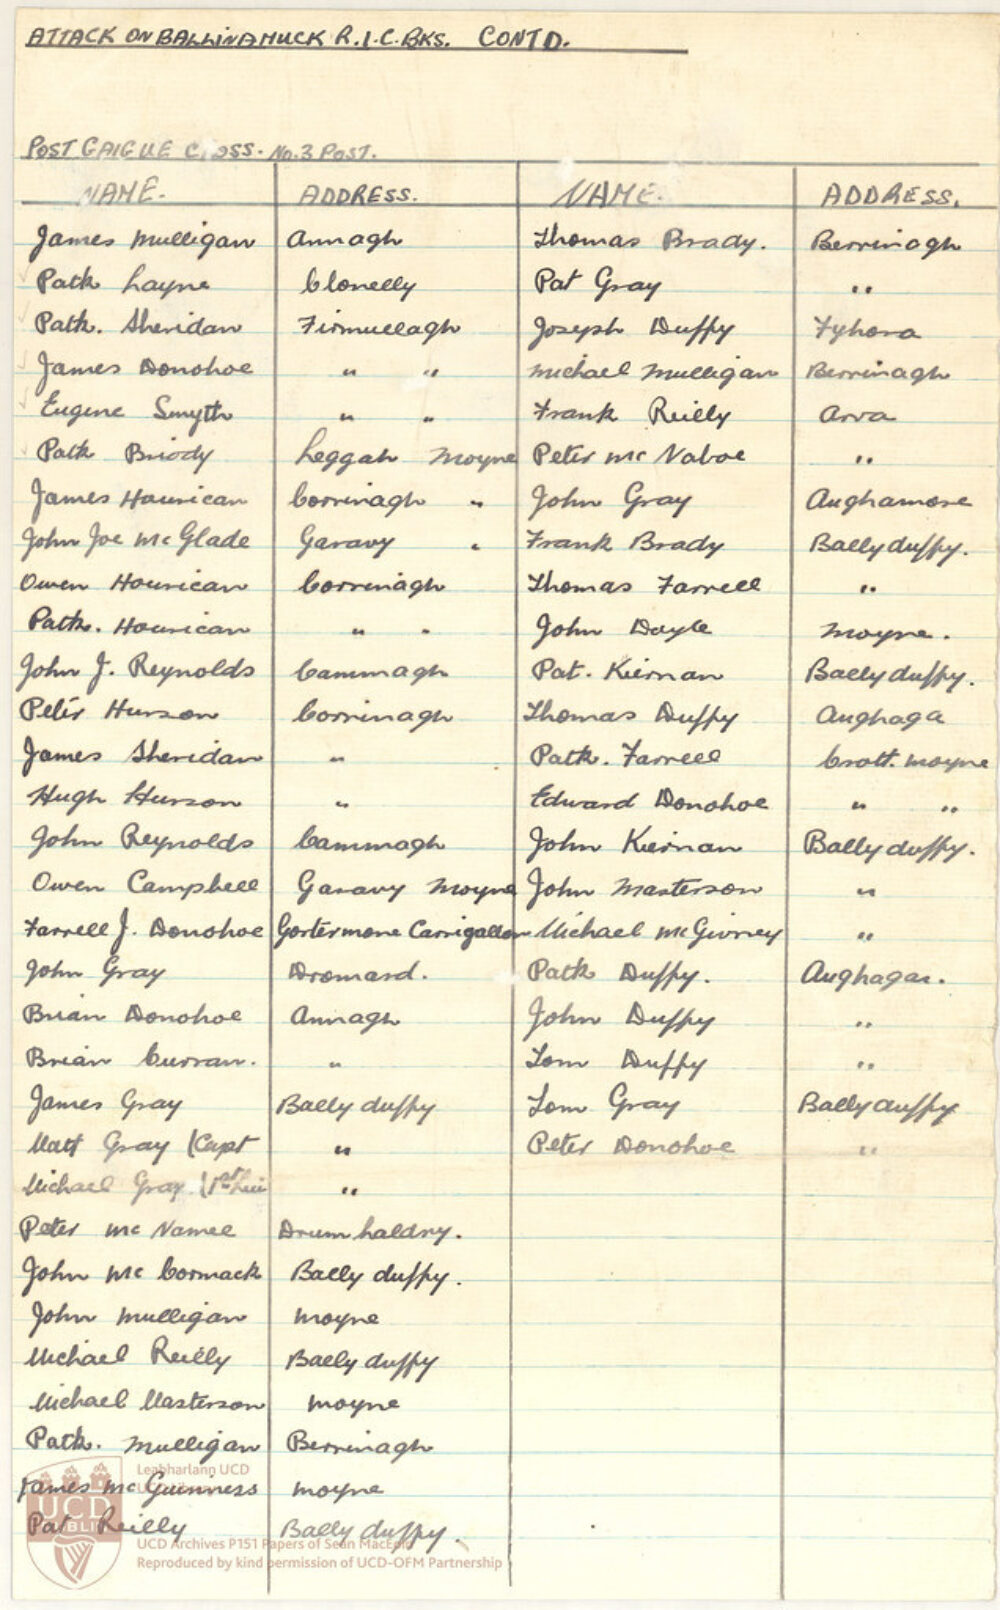 ATTACK ON BALLINAMUCK R.I.C. BKS. CONTD.
POST GAIGUE CROSS. No. 3 POST.
NAME. ADDRESS. NAME. ADDRESS.
James Mulligan Annagh Thomas Brady. Berrinagh
Patk Layne Clonelly Pat Gray "
Patk. Sheridan Firmullagh Joseph Duffy Fyhora
James Donohoe " " Michael Mulligan Berrinagh
Eugene Smyth " " Frank Reilly Arva
Patk Briody Leggah Moyne Peter Mc Naboe "
James Hourican Corrinagh " John Gray Aughamore
John Joe Mc Glade Garavy " Frank Brady Ballyduffy.
Owen Hourican Corrinagh Thomas Farrell "
Patk. Hourican " " John Doyle Moyne.
John J. Reynolds Cammagh Pat. Kiernan Ballyduffy.
Peter Hurson Corrinagh Thomas Duffy Aughaga
James Sheridan " Patk. Farrell Crott. Moyne
Hugh Hurson " Edward Donohoe " "
John Reynolds Cammagh John Kiernan Ballyduffy.
Owen Campbell Garavy Moyne John Masterson "
Farrell J. Donohoe Gortermone Carrigallen Michael McGivney "
John Gray Dromard. Patk Duffy. Aughagar.
Brian Donohoe Annagh John Duffy "
Brian Curran. " Tom Duffy "
James Gray Bally duffy Tom Gray Ballyduffy
Matt Gray (Capt " Peter Donohoe "
Michael Gray (1st Lieu "
Peter Mc Namee Drumhaldry.
John Mc Cormack Bally duffy.
John Mulligan Moyne
Michael Reilly Bally duffy
Michael Masterson Moyne
Patk. Mulligan Berrinagh
James Mc Guinness Moyne
Pat Reilly Bally duffy.
Leabharlann UCD
UCD
DUBLIN
UCD Archives P151 Papers of Seán MacEoin
Reproduced by kind permission of UCD-OFM Partnership